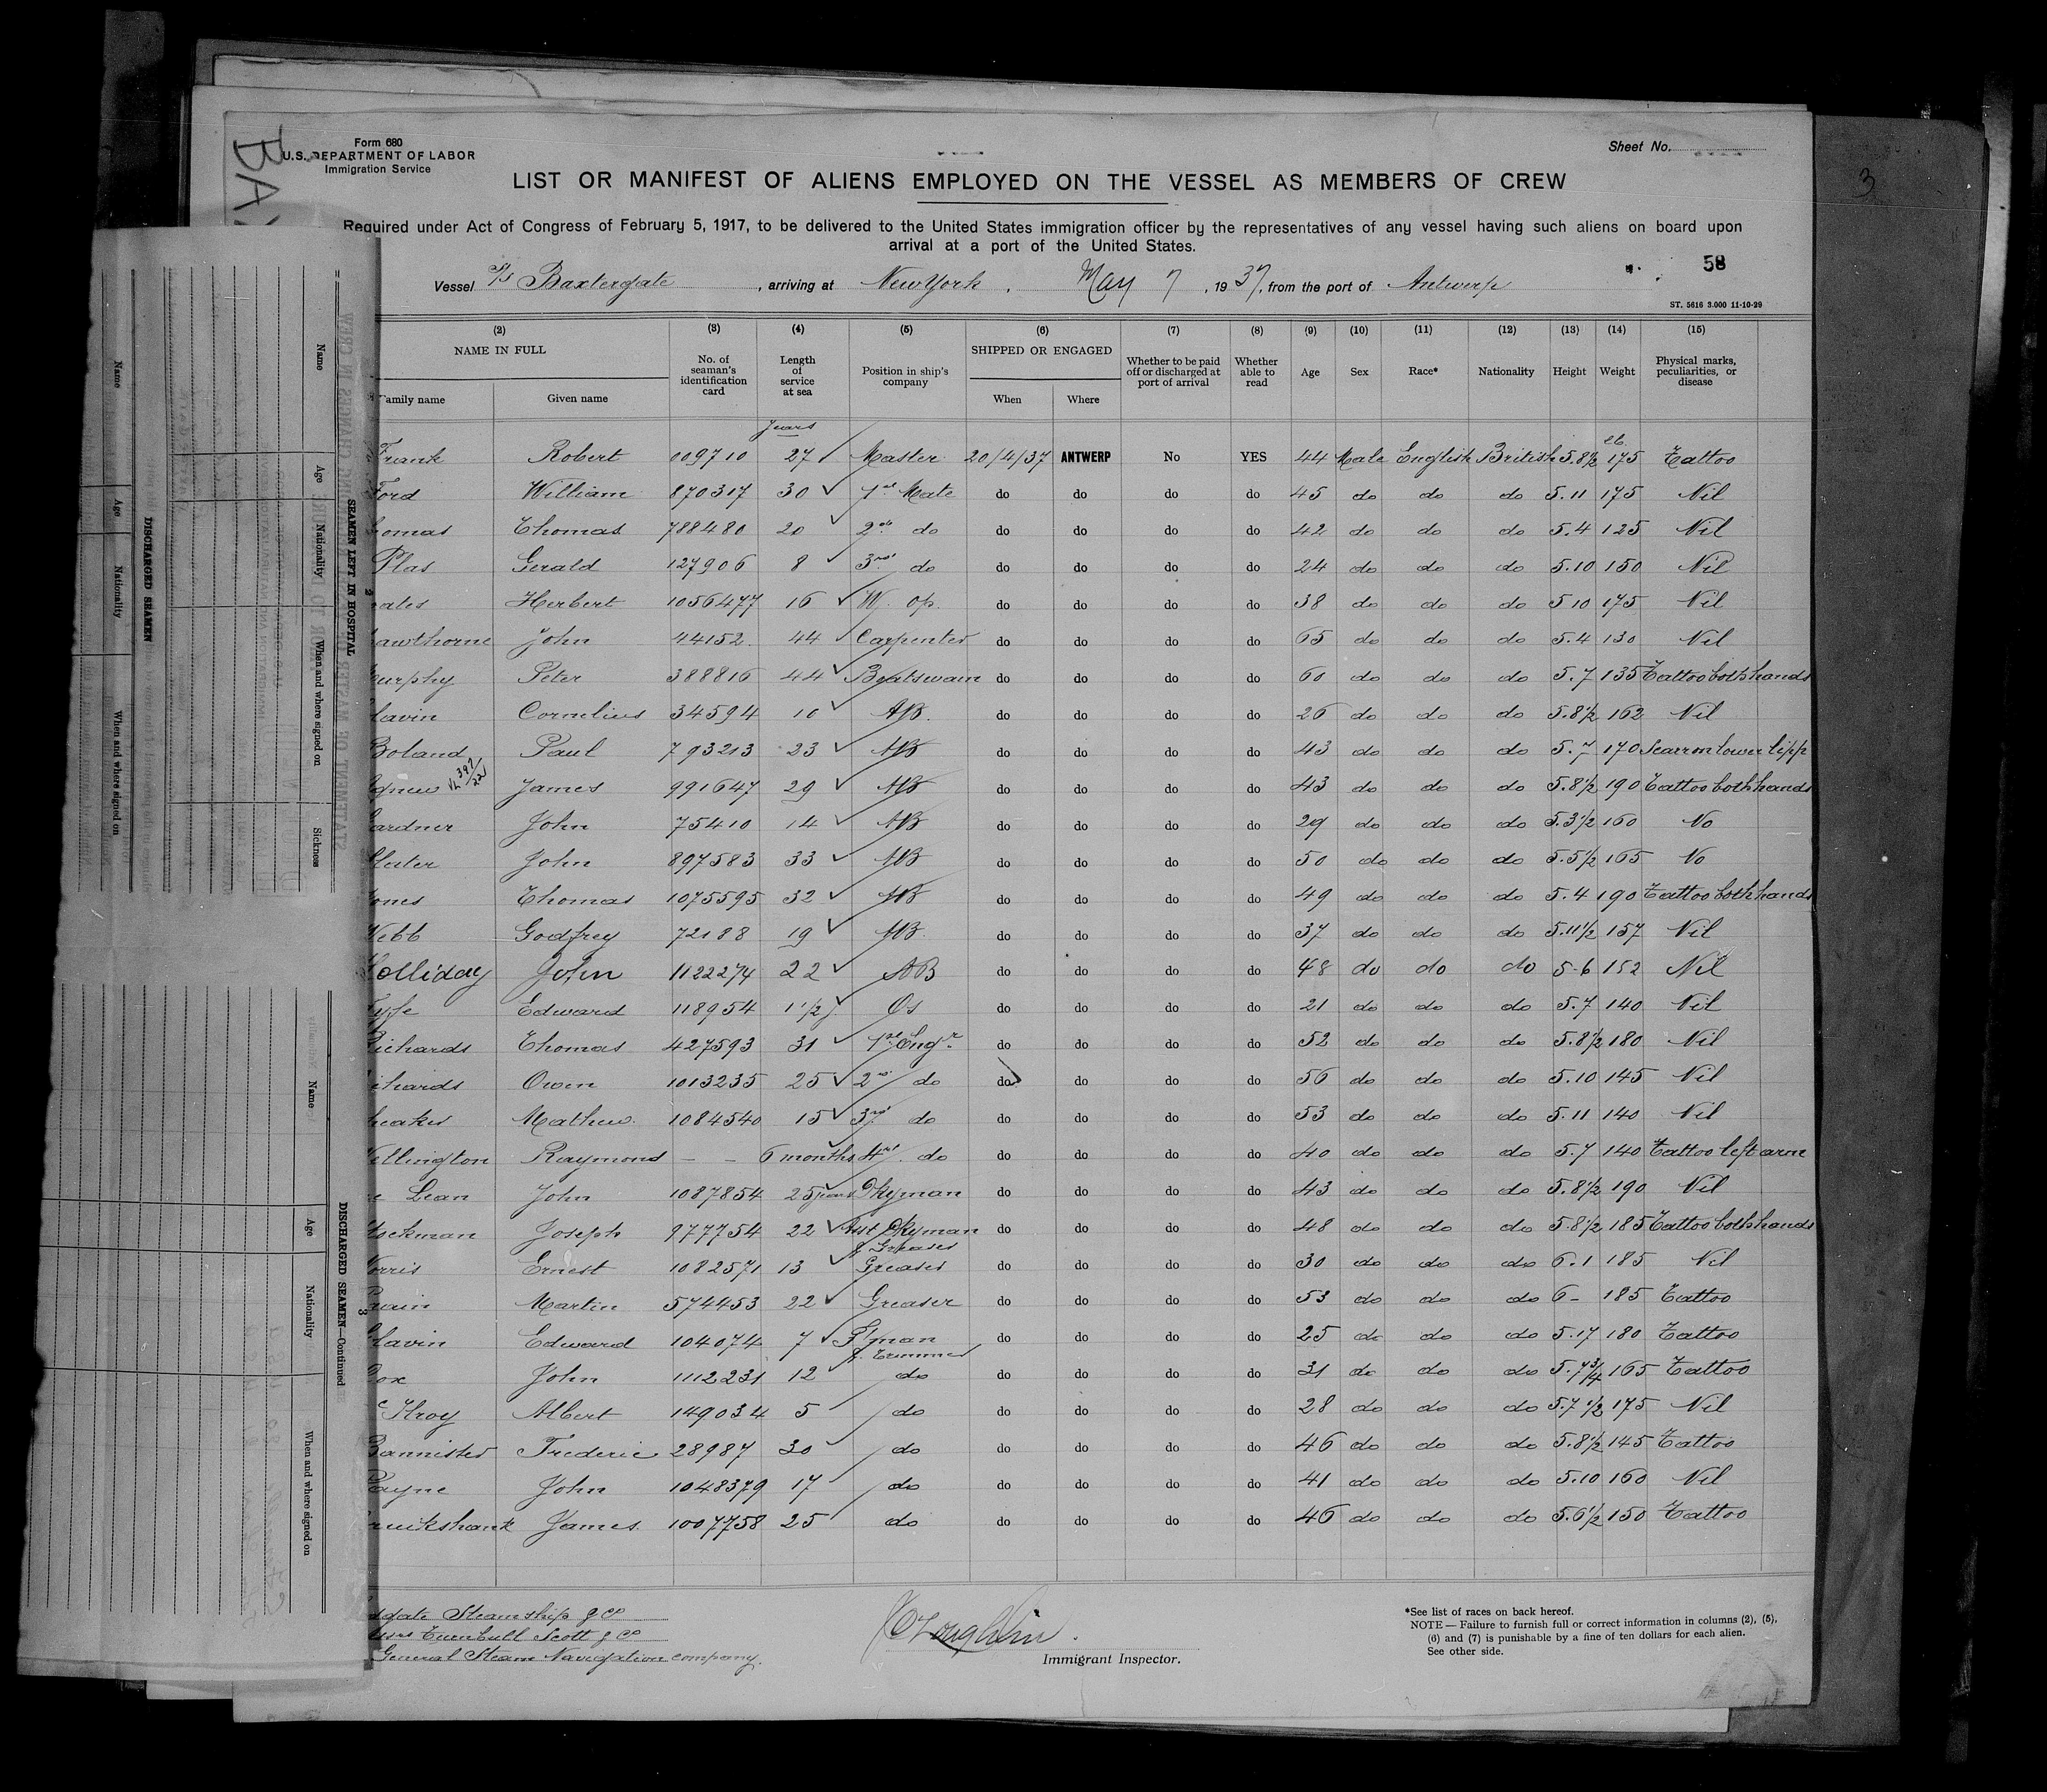 Form 680
U.S. DEPARTMENT OF LABOR
Immigration Service
Sheet No.
3
LIST OR MANIFEST OF ALIENS EMPLOYED ON THE VESSEL AS MEMBERS OF CREW
Required under Act of Congress of February 5, 1917, to be delivered to the United States immigration officer by the representatives of any vessel having such aliens on board upon
arrival at a port of the United States.
58
Vessel S/S Baxtergate, arriving at New York, May 7, 1937, from the port of Antwerp
ST. 5616 3.000 11-10-29
(2) (3) (4) (5) (6) (7) (8) (9) (10) (11) (12) (13) (14) (15)
NAME IN FULL No. of seaman's identification card Length of service at sea Position in ship's company SHIPPED OR ENGAGED Whether to be paid off or discharged at port of arrival Whether able to read Age Sex Race* Nationality Height Weight Physical marks, peculiarities, or disease
Family name Given name When Where
Years lb.
Frank Robert 009710 27 Master 20/4/37 ANTWERP No YES 44 Male English British 5.8½ 175 Tattoo
Ford William 870317 30 1st Mate do do do do 45 do do do 5.11 175 Nil
omas Thomas 788480 20 2nd do do do do do 42 do do do 5.4 125 Nil
Plas Gerald 127906 8 3rd do do do do do 24 do do do 5.10 150 Nil
ates Herbert 1056477 16 W. op. do do do do 38 do do do 5 10 175 Nil
awthorne John 44152 44 Carpenter do do do do 65 do do do 5.4 130 Nil
urphy Peter 388816 44 Boatswain do do do do 60 do do do 5.7 135 Tattoo both hands
lavin Cornelius 34594 10 AB. do do do do 26 do do do 5.8½ 162 Nil
Boland Paul 793213 23 AB do do do do 43 do do do 5.7 170 Scar on lower lipp
gnew James 991647 29 AB do do do do 43 do do do 5.8½ 190 Tattoo both hands
ardner John 75410 14 AB do do do do 29 do do do 5.3½ 160 No
later John 897583 33 AB do do do do 50 do do do 5.5½ 165 No
ones Thomas 1075595 32 AB do do do do 49 do do do 5.4 190 Tattoo both hands
Webb Godfrey 72188 19 AB. do do do do 37 do do do 5.11½ 157 Nil
Holliday John 1122274 22 AB do do do do 48 do do do 5-6 152 Nil
yfe Edward 118954 1½ Os do do do do 21 do do do 5.7 140 Nil
Richards Thomas 427593 31 1st Engr do do do do 52 do do do 5.8½ 180 Nil
ichards Owen 1013235 25 2nd do do do do do 56 do do do 5.10 145 Nil
heaker Mathew. 1084540 15 3rd do do do do do 53 do do do 5.11 140 Nil
ellington Raymond — — 6 months 4th do do do do do 40 do do do 5.7 140 Tattoo left arm
c Lean John 1087854 25 years Dkyman do do do do 43 do do do 5.8½ 190 Nil
ockman Joseph 977754 22 Asst Dkyman & Greaser do do do do 48 do do do 5.8½ 185 Tattoo both hands
orris Ernest 1082571 13 Greaser do do do do 30 do do do 6.1 185 Nil
wain Martin 574453 22 Greaser do do do do 53 do do do 6- 185 Tattoo
lavin Edward 104074 7 F/man & Trimmer do do do do 25 do do do 5.17 180 Tattoo
ox John 1112231 12 do do do do do 31 do do do 5.7¾ 165 Tattoo
c Ilroy Albert 149034 5 do do do do do 28 do do do 5.7½ 175 Nil
Bannister Frederic 28987 30 do do do do do 46 do do do 5.8½ 145 Tattoo
Payne John 1048379 17 do do do do do 41 do do do 5.10 160 Nil
ruikshank James. 1007758 25 do do do do do 46 do do do 5.6½ 150 Tattoo
gate Steamship & Co
Turnbull Scott & Co
General Steam Navigation company.
Immigrant Inspector.
*See list of races on back hereof.
NOTE — Failure to furnish full or correct information in columns (2), (5),
(6) and (7) is punishable by a fine of ten dollars for each alien.
See other side.
DISCHARGED SEAMEN
Name Age Nationality When and where signed on
SEAMEN LEFT IN HOSPITAL
Name Age Nationality When and where signed on Sickness
2
DISCHARGED SEAMEN—Continued
Name Age Nationality When and where signed on
3